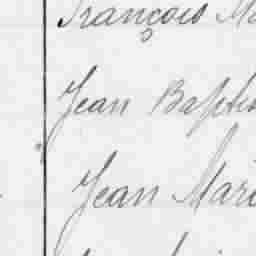 François Ma
Jean Baptis
Jean Mari